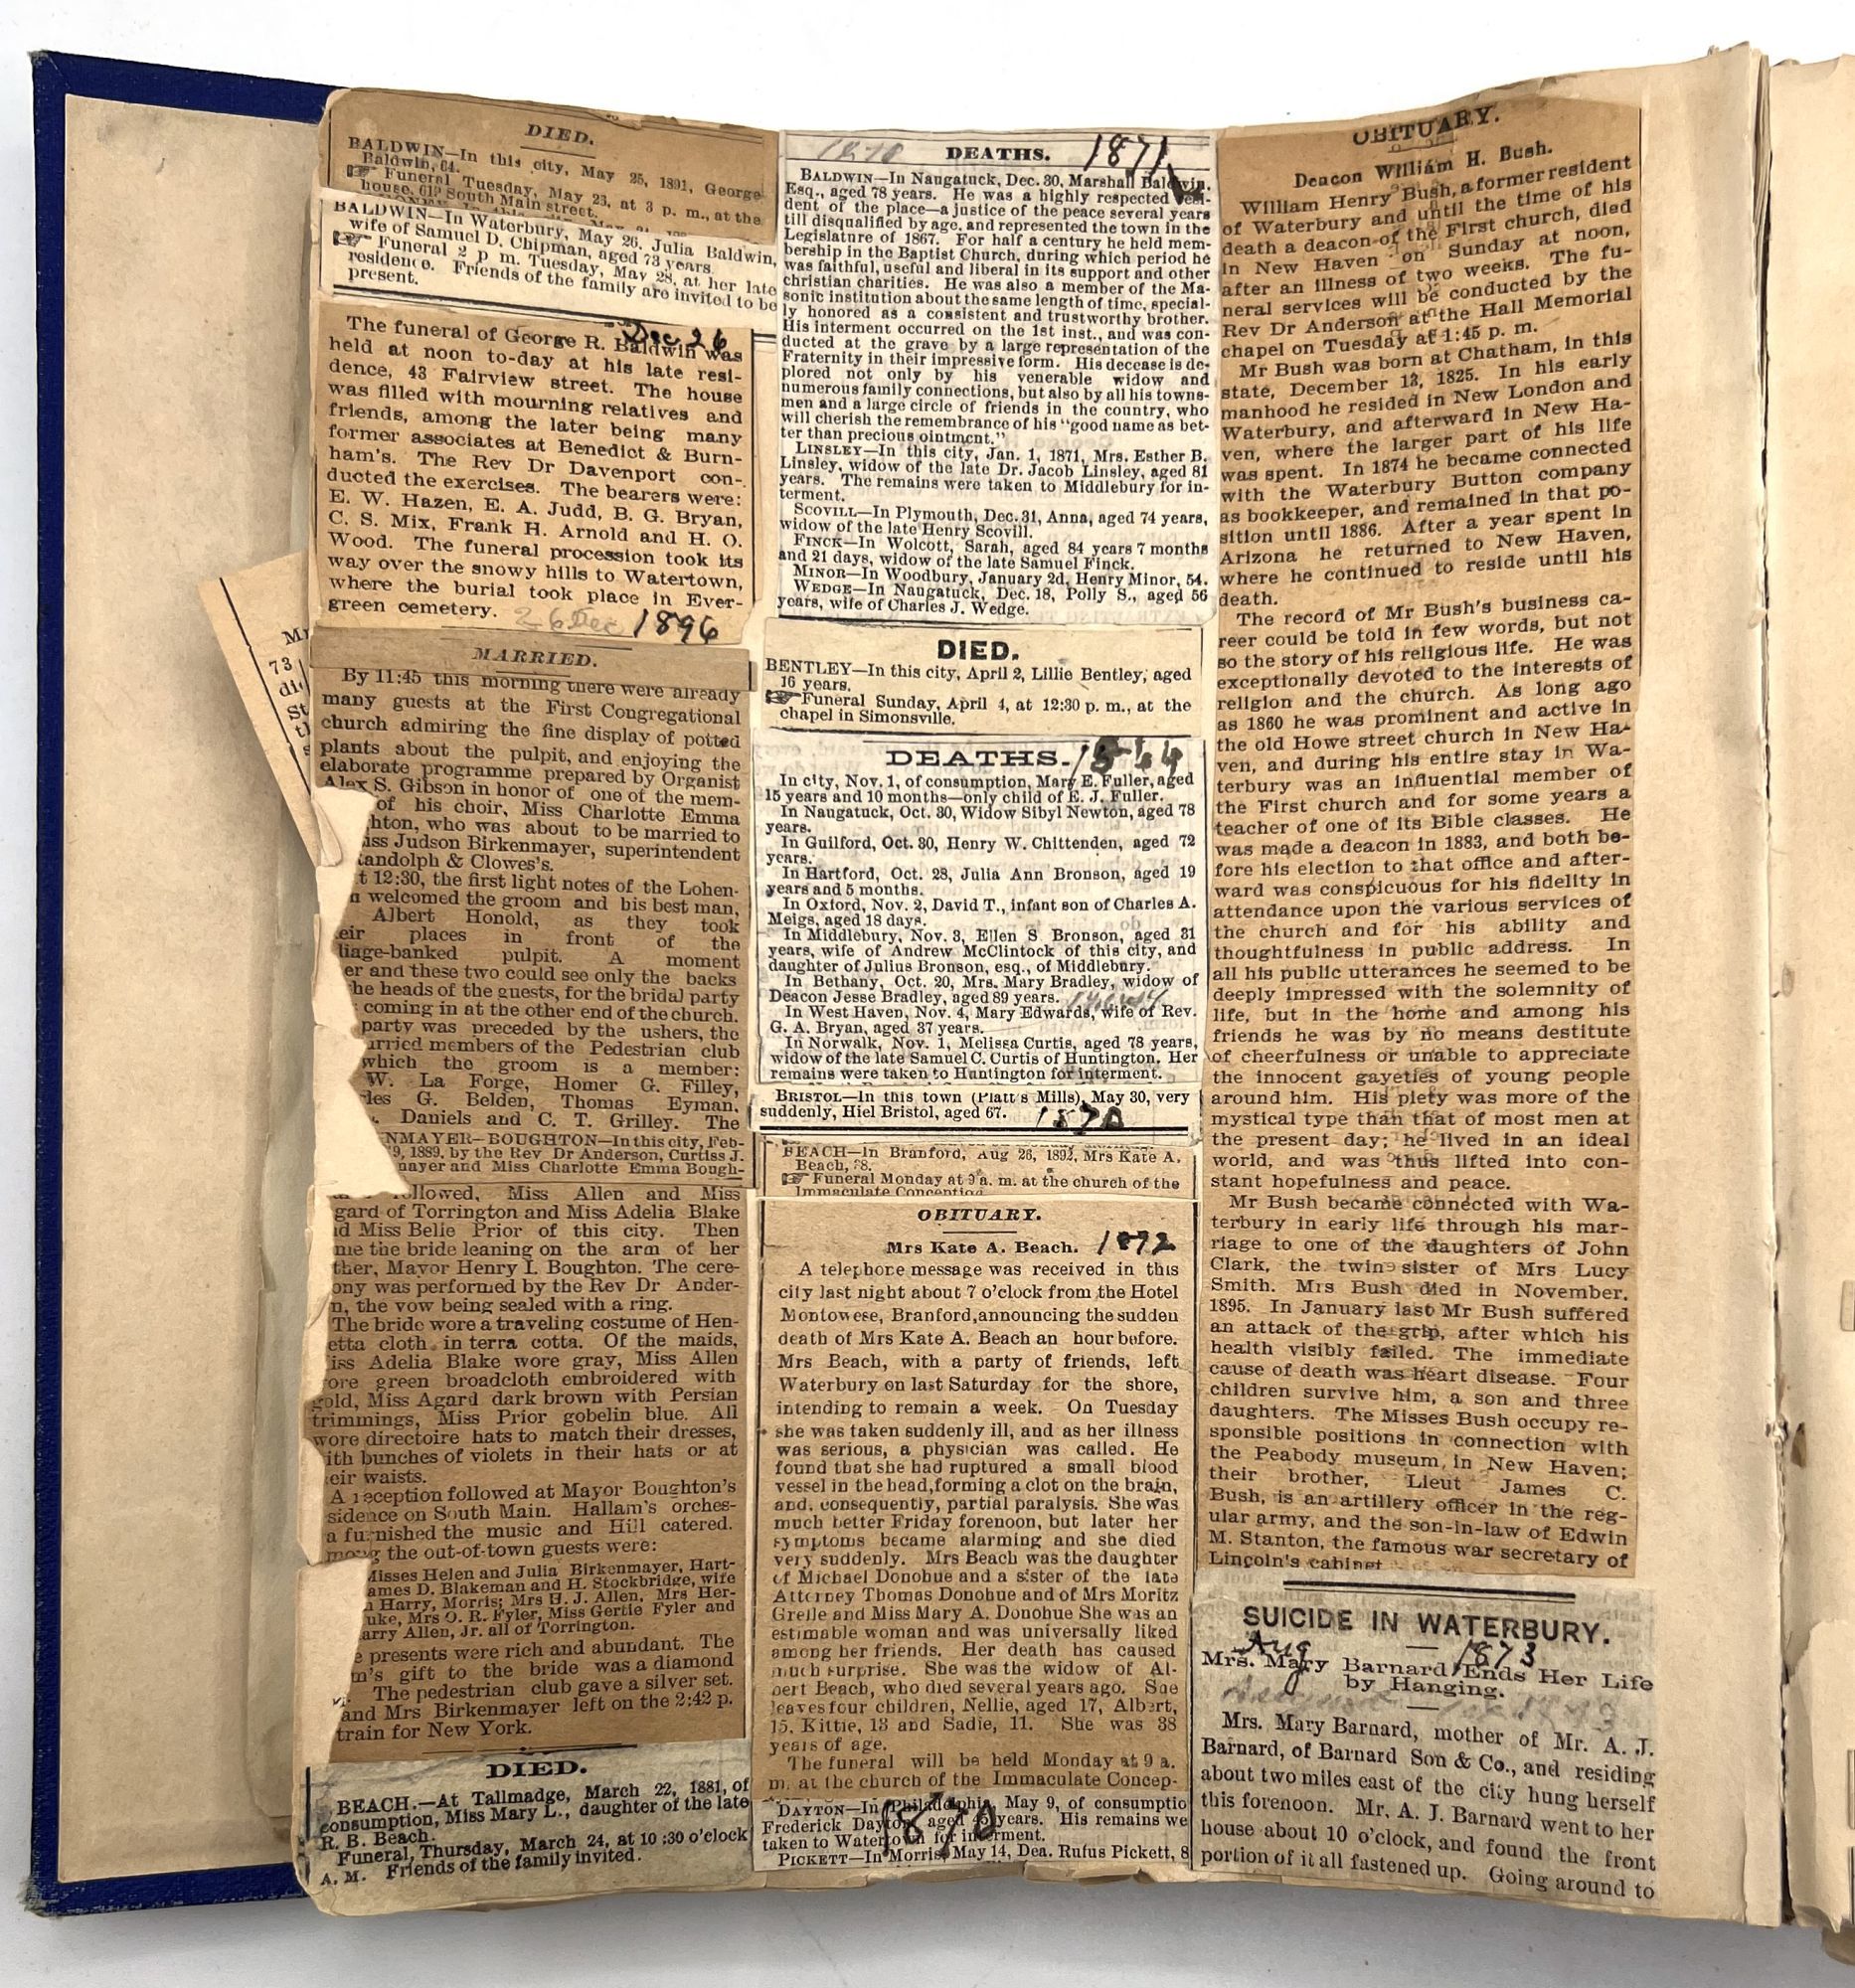 DIED.
BALDWIN—In this city, May 25, 1891, George
Baldwin, 64.
Funeral Tuesday, May 23, at 3 p. m., at the
house, 619 South Main street.
BALDWIN—In Waterbury, May 26, Julia Baldwin,
wife of Samuel D. Chipman, aged 73 years.
Funeral 2 p m. Tuesday, May 28, at her late
residence. Friends of the family are invited to be
present.
Dec 26
The funeral of George R. Baldwin was
held at noon to-day at his late resi-
dence, 43 Fairview street. The house
was filled with mourning relatives and
friends, among the later being many
former associates at Benedict & Burn-
ham's. The Rev Dr Davenport con-
ducted the exercises. The bearers were:
E. W. Hazen, E. A. Judd, B. G. Bryan,
C. S. Mix, Frank H. Arnold and H. O.
Wood. The funeral procession took its
way over the snowy hills to Watertown,
where the burial took place in Ever-
green cemetery.
26 Dec 1896
MARRIED.
By 11:45 this morning there were already
many guests at the First Congregational
church admiring the fine display of potted
plants about the pulpit, and enjoying the
elaborate programme prepared by Organist
Alex S. Gibson in honor of one of the mem-
of his choir, Miss Charlotte Emma
ghton, who was about to be married to
iss Judson Birkenmayer, superintendent
andolph & Clowes's.
t 12:30, the first light notes of the Lohen-
n welcomed the groom and his best man,
Albert Honold, as they took
eir places in front of the
liage-banked pulpit. A moment
er and these two could see only the backs
he heads of the guests, for the bridal party
coming in at the other end of the church.
party was preceded by the ushers, the
arried members of the Pedestrian club
which the groom is a member:
W. La Forge, Homer G. Filley,
les G. Belden, Thomas Eyman,
Daniels and C. T. Grilley. The
NMAYER—BOUGHTON—In this city, Feb-
9, 1889, by the Rev Dr Anderson, Curtiss J.
mayer and Miss Charlotte Emma Bough-
followed, Miss Allen and Miss
gard of Torrington and Miss Adelia Blake
nd Miss Belie Prior of this city. Then
me the bride leaning on the arm of her
ther, Mayor Henry I. Boughton. The cere-
ony was performed by the Rev Dr Ander-
n, the vow being sealed with a ring.
The bride wore a traveling costume of Hen-
etta cloth in terra cotta. Of the maids,
iss Adelia Blake wore gray, Miss Allen
ore green broadcloth embroidered with
gold, Miss Agard dark brown with Persian
trimmings, Miss Prior gobelin blue. All
wore directoire hats to match their dresses,
ith bunches of violets in their hats or at
eir waists.
A reception followed at Mayor Boughton's
sidence on South Main. Hallam's orches-
a furnished the music and Hill catered.
mong the out-of-town guests were:
Misses Helen and Julia Birkenmayer, Hart-
ames D. Blakeman and H. Stockbridge, wife
n Harry, Morris; Mrs H. J. Allen, Mrs Her-
uke, Mrs O. R. Fyler, Miss Gertie Fyler and
arry Allen, Jr. all of Torrington.
e presents were rich and abundant. The
m's gift to the bride was a diamond
The pedestrian club gave a silver set.
and Mrs Birkenmayer left on the 2:42 p.
train for New York.
DIED.
BEACH.—At Tallmadge, March 22, 1881, of
consumption, Miss Mary L., daughter of the late
R. B. Beach.
Funeral, Thursday, March 24, at 10:30 o'clock
A. M. Friends of the family invited.
1870 DEATHS. 1871
BALDWIN—In Naugatuck, Dec. 30, Marshall Baldwin,
Esq., aged 78 years. He was a highly respected resi-
dent of the place—a justice of the peace several years
till disqualified by age, and represented the town in the
Legislature of 1867. For half a century he held mem-
bership in the Baptist Church, during which period he
was faithful, useful and liberal in its support and other
christian charities. He was also a member of the Ma-
sonic institution about the same length of time, special-
ly honored as a consistent and trustworthy brother.
His interment occurred on the 1st inst., and was con-
ducted at the grave by a large representation of the
Fraternity in their impressive form. His decease is de-
plored not only by his venerable widow and
numerous family connections, but also by all his towns-
men and a large circle of friends in the country, who
will cherish the remembrance of his "good name as bet-
ter than precious ointment."
LINSLEY—In this city, Jan. 1, 1871, Mrs. Esther B.
Linsley, widow of the late Dr. Jacob Linsley, aged 81
years. The remains were taken to Middlebury for in-
terment.
SCOVILL—In Plymouth, Dec. 31, Anna, aged 74 years,
widow of the late Henry Scovill.
FINCK—In Wolcott, Sarah, aged 84 years 7 months
and 21 days, widow of the late Samuel Finck.
MINOR—In Woodbury, January 2d, Henry Minor, 54.
WEDGE—In Naugatuck, Dec. 18, Polly S., aged 56
years, wife of Charles J. Wedge.
DIED.
BENTLEY—In this city, April 2, Lillie Bentley, aged
16 years.
Funeral Sunday, April 4, at 12:30 p. m., at the
chapel in Simonsville.
DEATHS.
In city, Nov. 1, of consumption, Mary E. Fuller, aged
15 years and 10 months—only child of E. J. Fuller.
In Naugatuck, Oct. 30, Widow Sibyl Newton, aged 78
years.
In Guilford, Oct. 30, Henry W. Chittenden, aged 72
years.
In Hartford, Oct. 28, Julia Ann Bronson, aged 19
years and 5 months.
In Oxford, Nov. 2, David T., infant son of Charles A.
Meigs, aged 18 days.
In Middlebury, Nov. 3, Ellen S Bronson, aged 31
years, wife of Andrew McClintock of this city, and
daughter of Julius Bronson, esq., of Middlebury.
In Bethany, Oct. 20, Mrs. Mary Bradley, widow of
Deacon Jesse Bradley, aged 89 years.
In West Haven, Nov. 4, Mary Edwards, wife of Rev.
G. A. Bryan, aged 37 years.
In Norwalk, Nov. 1, Melissa Curtis, aged 78 years,
widow of the late Samuel C. Curtis of Huntington. Her
remains were taken to Huntington for interment.
BRISTOL—In this town (Platt's Mills), May 30, very
suddenly, Hiel Bristol, aged 67. 1870
BEACH—In Branford, Aug 26, 1892, Mrs Kate A.
Beach, 38.
Funeral Monday at 9 a. m. at the church of the
Immaculate Conception
OBITUARY.
Mrs Kate A. Beach. 1892
A telephone message was received in this
city last night about 7 o'clock from the Hotel
Montowese, Branford, announcing the sudden
death of Mrs Kate A. Beach an hour before.
Mrs Beach, with a party of friends, left
Waterbury on last Saturday for the shore,
intending to remain a week. On Tuesday
she was taken suddenly ill, and as her illness
was serious, a physician was called. He
found that she had ruptured a small blood
vessel in the head, forming a clot on the brain,
and, consequently, partial paralysis. She was
much better Friday forenoon, but later her
symptoms became alarming and she died
very suddenly. Mrs Beach was the daughter
of Michael Donohue and a sister of the late
Attorney Thomas Donohue and of Mrs Moritz
Grelle and Miss Mary A. Donohue She was an
estimable woman and was universally liked
among her friends. Her death has caused
much surprise. She was the widow of Al-
bert Beach, who died several years ago. She
leaves four children, Nellie, aged 17, Albert,
15, Kittie, 13 and Sadie, 11. She was 38
years of age.
The funeral will be held Monday at 9 a.
m. at the church of the Immaculate Concep-
DAYTON—In Philadelphia, May 9, of consumptio
Frederick Dayton, aged 45 years. His remains we
taken to Watertown for interment.
1870
PICKETT—In Morris, May 14, Dea. Rufus Pickett, 8
OBITUARY.
Deacon William H. Bush.
William Henry Bush, a former resident
of Waterbury and until the time of his
death a deacon of the First church, died
in New Haven on Sunday at noon,
after an illness of two weeks. The fu-
neral services will be conducted by the
Rev Dr Anderson at the Hall Memorial
chapel on Tuesday at 1:45 p. m.
Mr Bush was born at Chatham, in this
state, December 13, 1825. In his early
manhood he resided in New London and
Waterbury, and afterward in New Ha-
ven, where the larger part of his life
was spent. In 1874 he became connected
with the Waterbury Button company
as bookkeeper, and remained in that po-
sition until 1886. After a year spent in
Arizona he returned to New Haven,
where he continued to reside until his
death.
The record of Mr Bush's business ca-
reer could be told in few words, but not
so the story of his religious life. He was
exceptionally devoted to the interests of
religion and the church. As long ago
as 1860 he was prominent and active in
the old Howe street church in New Ha-
ven, and during his entire stay in Wa-
terbury was an influential member of
the First church and for some years a
teacher of one of its Bible classes. He
was made a deacon in 1883, and both be-
fore his election to that office and after-
ward was conspicuous for his fidelity in
attendance upon the various services of
the church and for his ability and
thoughtfulness in public address. In
all his public utterances he seemed to be
deeply impressed with the solemnity of
life, but in the home and among his
friends he was by no means destitute
of cheerfulness or unable to appreciate
the innocent gayeties of young people
around him. His piety was more of the
mystical type than that of most men at
the present day; he lived in an ideal
world, and was thus lifted into con-
stant hopefulness and peace.
Mr Bush became connected with Wa-
terbury in early life through his mar-
riage to one of the daughters of John
Clark, the twin sister of Mrs Lucy
Smith. Mrs Bush died in November,
1895. In January last Mr Bush suffered
an attack of the grip, after which his
health visibly failed. The immediate
cause of death was heart disease. Four
children survive him, a son and three
daughters. The Misses Bush occupy re-
sponsible positions in connection with
the Peabody museum, in New Haven;
their brother, Lieut James C.
Bush, is an artillery officer in the reg-
ular army, and the son-in-law of Edwin
M. Stanton, the famous war secretary of
Lincoln's cabinet
SUICIDE IN WATERBURY.
Aug 1873
Mrs. Mary Barnard Ends Her Life
by Hanging.
Mrs. Mary Barnard, mother of Mr. A. J.
Barnard, of Barnard Son & Co., and residing
about two miles east of the city hung herself
this forenoon. Mr. A. J. Barnard went to her
house about 10 o'clock, and found the front
portion of it all fastened up. Going around to